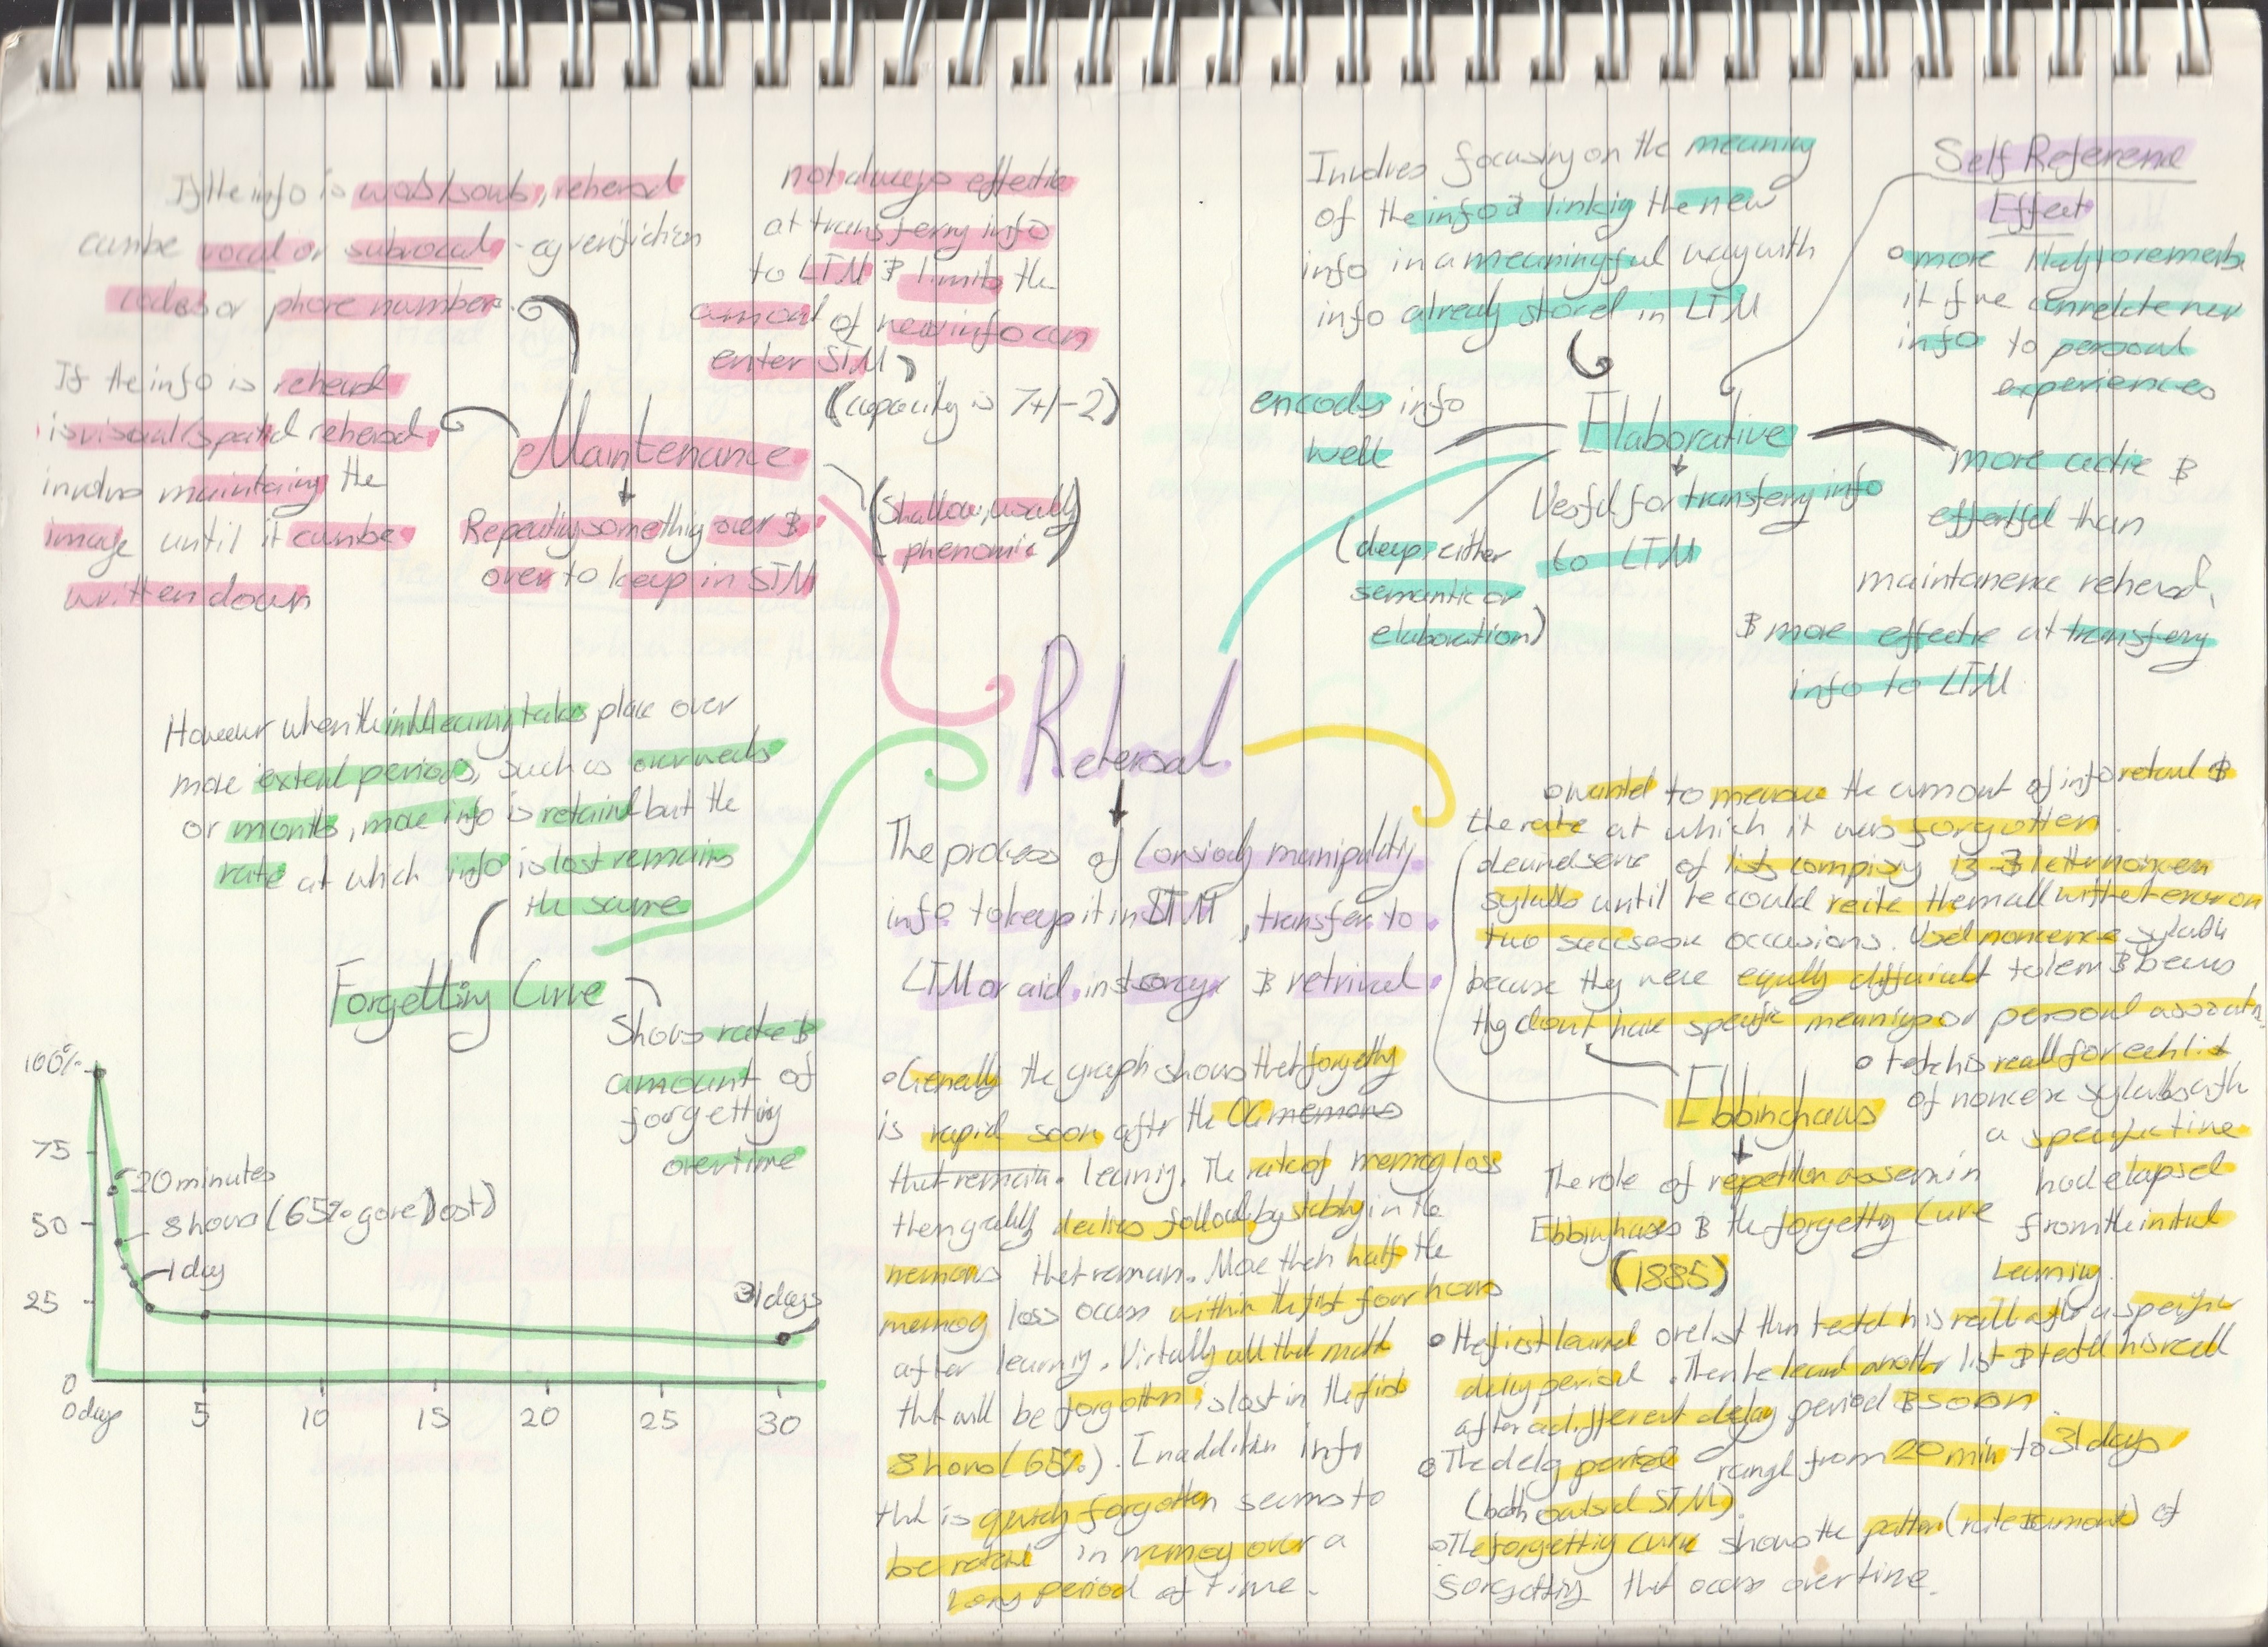 If the info is words/sounds, rehersal
can be vocal or subvocal - eg verifiction
codes or phone numbers.
not always effective
at transferring info
to LTM & limits the
amount of new info can
enter STM
(capacity is 7+/-2)
If the info is rehersal
is visual/spatial rehersal
involves maintaining the
image until it can be
written down
Maintenance
Repeating something over &
over to keep in STM
(Shallow, usually
phenomic)
Involves focusing on the meaning
of the info & linking the new
info in a meaningful way with
info already stored in LTM
Self Reference
Effect
more likely to remember
it if we can relate new
info to personal
experiences
encodes info
well
Elaborative
Useful for transferring info
to LTM
(deep, either
semantic or
elaboration)
more active &
effortful than
maintanence rehersal,
& more effective at transferring
info to LTM
Rehersal
The process of consciously manipulating
info to keep it in STM, transfer to
LTM or aid in storage & retrival.
However when the initial learning takes place over
more extend periods, such as over weeks
or months, more info is retained but the
rate at which info is lost remains
the same
Forgetting Curve
Shows rate &
amount of
forgetting
over time
100%
75
50
25
0
20 minutes
8 hours (65% gone/lost)
1 day
31 days
0 days 5 10 15 20 25 30
Generally the graph shows that forgetting
is rapid soon after the OG memories
that remain. learning. The rate of memory loss
then gradually declines followed by stability in the
memories that remain. More than half the
memory loss occurs within the first four hours
after learning. Virtually all the
that will be forgotten is lost in the first
8 hours (65%). In addition info
that is quickly forgotten seems to
be retained in memory over a
long period of time.
wanted to measure the amount of info retained &
the rate at which it was forgotten.
learned series of lists comprising 13 3 letter noncen
syllabls until he could recite them all without error on
two succseove occasions. Used noncence sylabls
because they were equally difficult to learn &
they dont have specific meanings or personal
Ebbinghaus
tested his recall for each list
of noncence syllabls with
a specific time
had elapsed
from the initial
Learning.
The role of repetition as seen in
Ebbinghaus & the forgetting Curve
(1885)
He first learned one list then tested his recall after a specific
delay period. Then he learned another list & tested his recall
after a different delay period & so on
The delay period ranged from 20 min to 31 days
(both outsid STM)
The forgetting curve shows the pattern (rate & amount) of
forgetting that occurs over time.